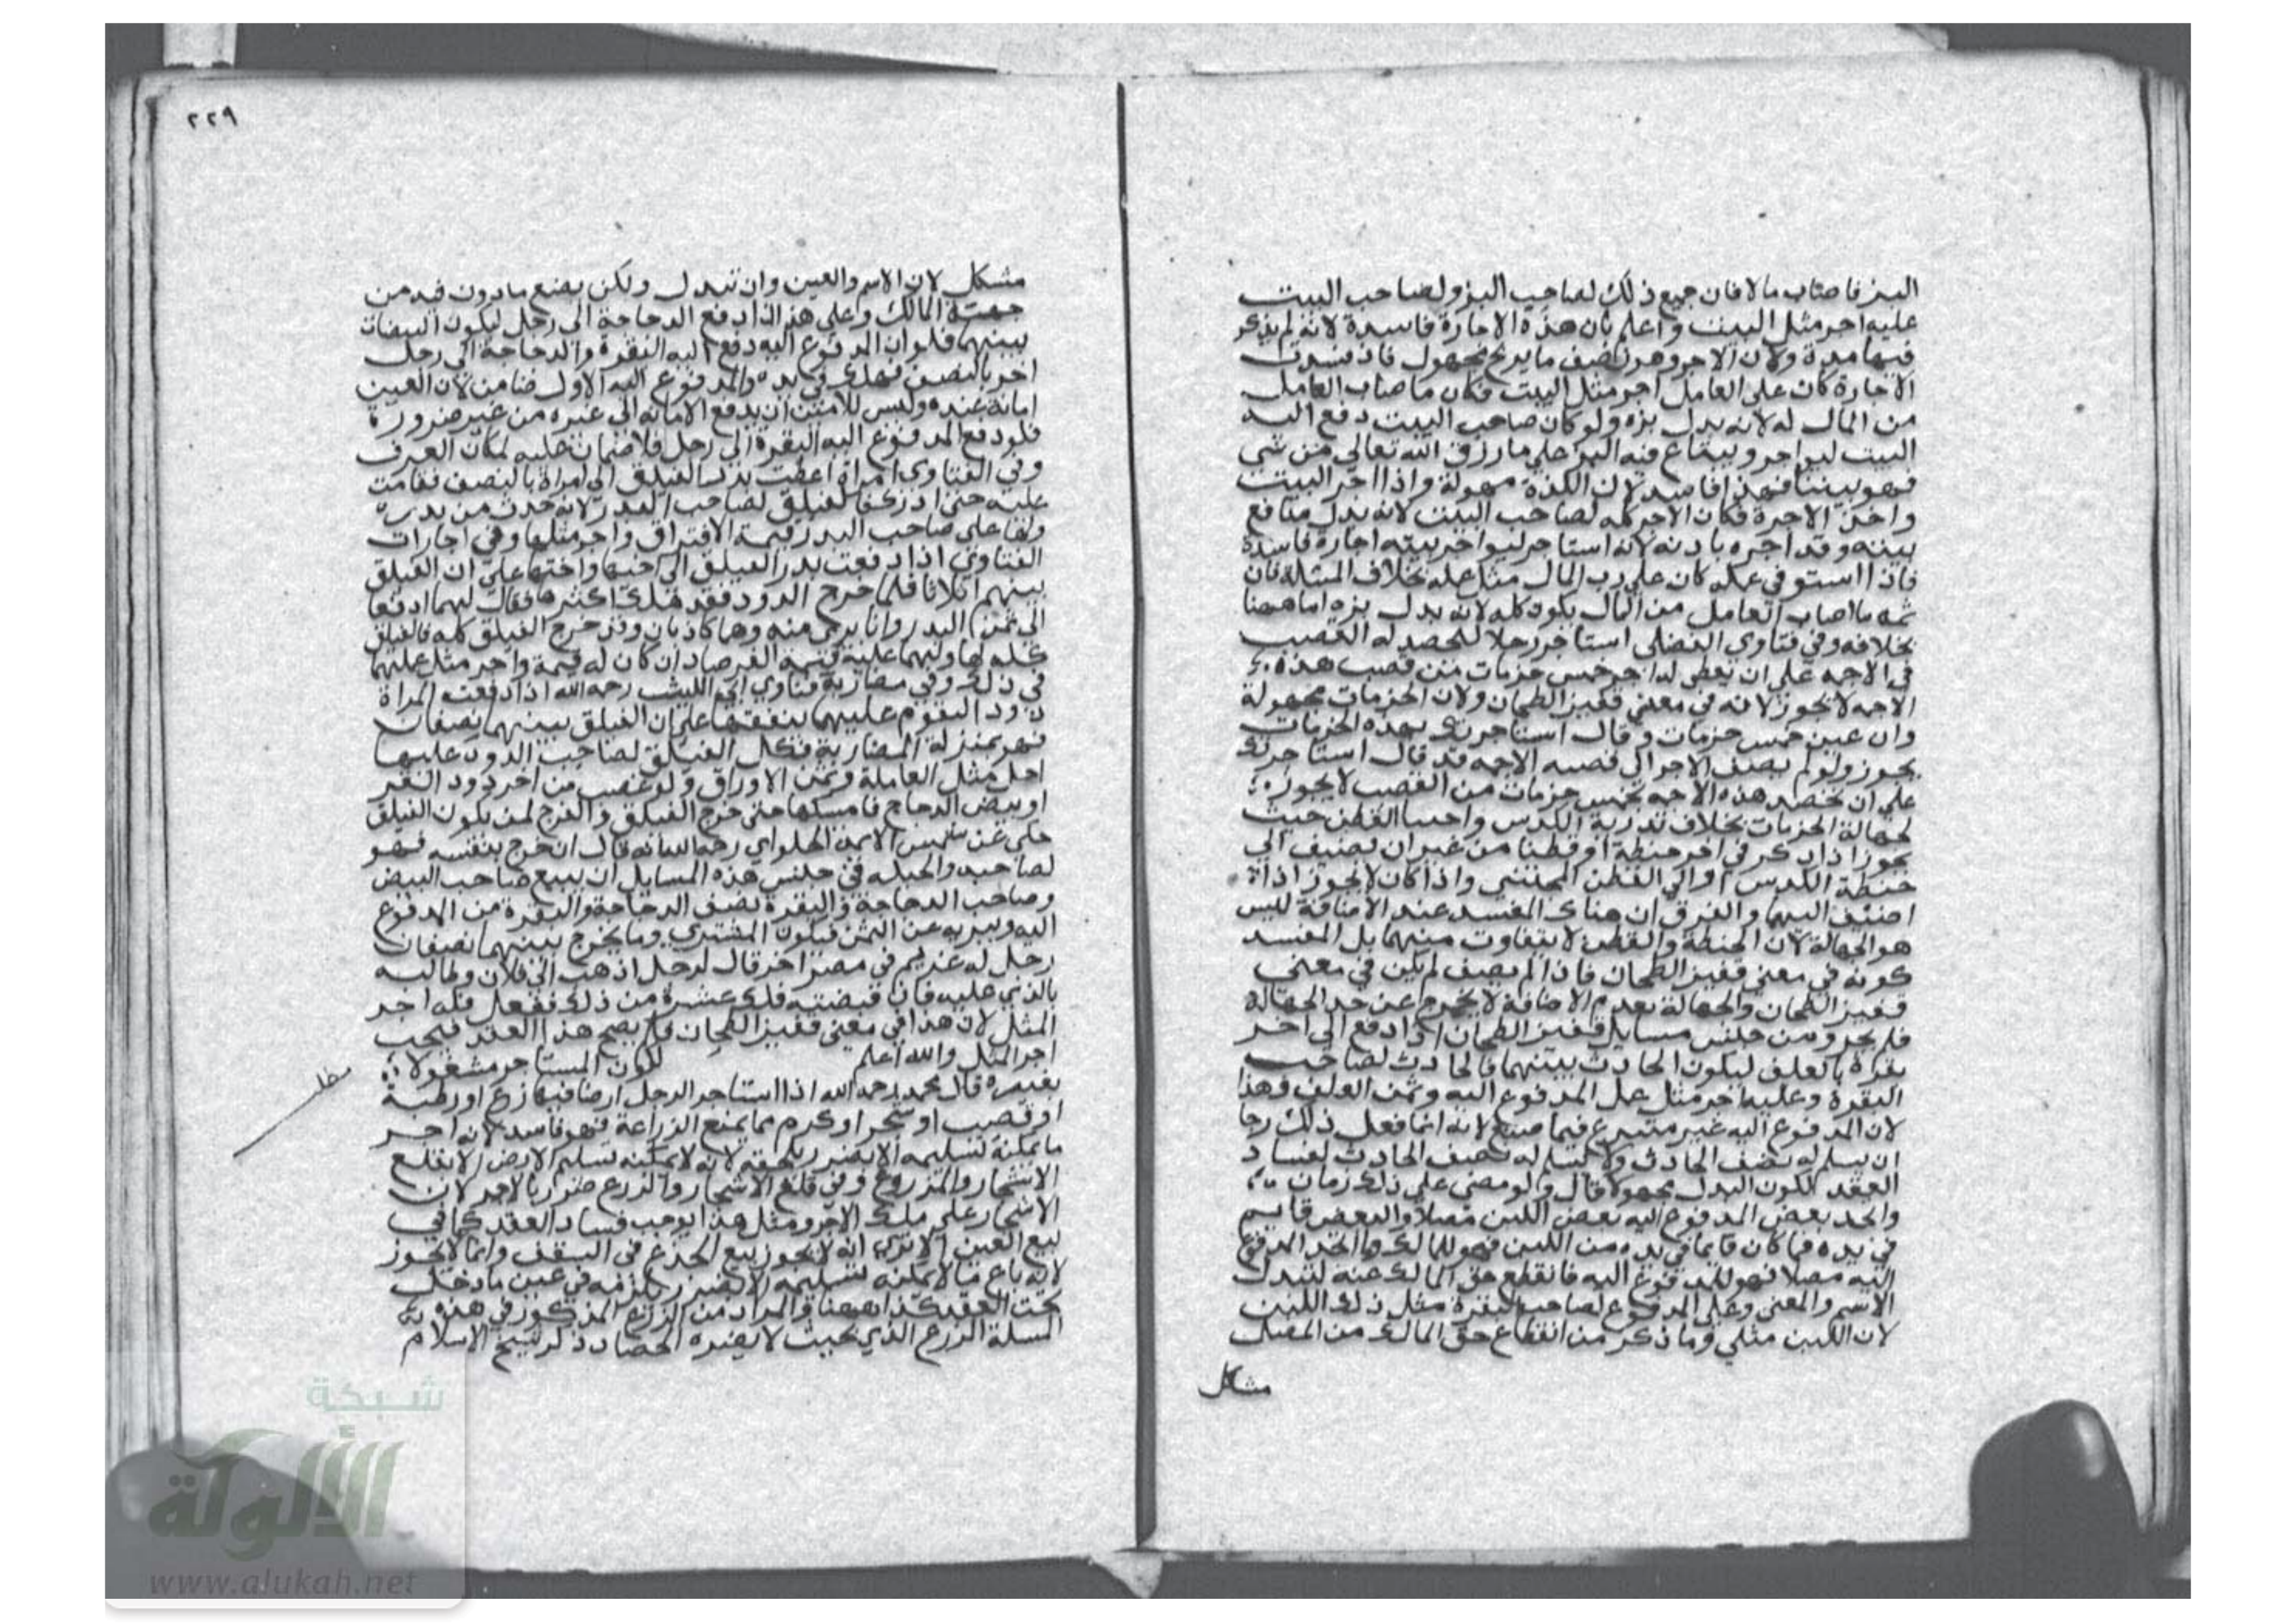 البز فاصاب مالا فان جميع ذلك لصاحب البز ولصاحب البيت
عليه اجر مثل البيت واعلم بان هذه الاجارة فاسدة لانه لم يذكر
فيها مدة ولان الاجر وهو نصف ما يربح مجهول فاذ فسدت
الاجارة كان على العامل اجر مثل البيت فكان ما صاب العامل
من المال له لانه بدل بزه ولو كان صاحب البيت دفع اليه
البيت ليواجر ويباع فيه البز على ما رزق الله تعالى من شي
فهو بيننا فهذا فاسد لان المدة مجهولة واذا اجر البيت
واخذ الاجرة فكان الاجر كله لصاحب البيت لانه بدل منافع
بيته وقد اجره باذنه لانه استاجر ليواجر بيته اجارة فاسدة
فاذا استوفي عمله كان على رب المال مثل عمله بخلاف المسئلة فان
ثمه ما اصاب العامل من المال يكون كله لانه بدل بزه اما ههنا
بخلافه وفي فتاوى الفضلي استاجر رجلا ليحصد له القصب
في الاجمة على ان يعطى له اجر خمس حزمات من قصب هذه
الاجمه لا يجوز لانه في معنى قفيز الطحان ولان الحزمات مجهولة
وان عين خمس حزمات وقال استاجرتك بهذه الحزمات
يجوز ولو لم يضف الاجر الى قصب الاجمه قد قال استاجرتك
على ان تحصد هذه الاجمه بخمس حزمات من القصب لا يجوز
لجهالة الحزمات بخلاف تذرية الكدس واجتنا القطن حيث
يجوز اذا ذكر في اخر حنطة او قطنا من غير ان يضيف الى
حنطة الكدس او الى القطن المجتني واذا كان لا يجوز اذا
اضيف اليها والفرق ان هناك المفسد عند الاضافة ليس
هو الجهالة لان الحنطة والقطن لا يتفاوت منهما بل المفسد
كونه في معنى قفيز الطحان فاذا لم يضف لم يكن في معنى
قفيز الطحان والجهالة بعدم الاضافة لا يخرج عن حد الجهالة
فلم يجز ومن جنس مسايل قفيز الطحان اذا دفع الى اخر
بقرة بالعلف ليكون الحادث بينهما فالحادث لصاحب
البقرة وعليه اجر مثل عمل المدفوع اليه وثمن العلف فهذا
لان المدفوع اليه غير متبرع فيما صنع لانه انما فعل ذلك رجا
ان يسلم له نصف الحادث ولا يسلم له نصف الحادث لفساد
العقد لكون البدل مجهولا قال ولو مضى على ذلك زمان
واتخذ بعض المدفوع اليه بعض اللبن مصلا والبعض قايم
في يده فما كان قايما في يده من اللبن فهو للمالك وما اتخذ المدفوع
اليه مصلا فهو للمدفوع اليه فانقطع حق المالك عنه لتبدل
الاسم والمعنى وعلى المدفوع لصاحب البقرة مثل ذلك اللبن
لان اللبن مثلي وما ذكر من انقطاع حق المالك من المصل
مشكل
٢٢٩
مشكل لان الاسم والعين وان تبدل ولكن بصنع مادون فيه من
جهة المالك وعلى هذا اذا دفع الدجاجة الى رجل ليكون البيضات
بينهما فلو ان المدفوع اليه دفع اليه البقرة والدجاجة الى رجل
اخر بالنصف فهلك في يده والمدفوع اليه الاول ضامن لان العين
امانة عنده وليس للامين ان يدفع الامانه الى غيره من غير ضرورة
فلو دفع المدفوع اليه البقرة الى رجل فلا ضمان عليه لمكان العرف
وفي الفتاوى امراة اعطت بذر الفيلق الى امراة بالنصف فقامت
عليه حتى ادرك فالفيلق لصاحب البذر لانه حدث من بذره
ولها على صاحب البذر قيمة الاوراق واجر مثلها وفي اجارات
الفتاوى اذا دفعت بذر الفيلق الى واختها على ان الفيلق
بينهم اثلاثا فلما خرج الدود فقد هلك اكثرها فقال لهما ادفعا
الى ثمن البذر وانا برى منه وهما كاذبان وقد خرج الفيلق كله فالفيلق
كله لها ولهما عليه قيمة الفرصاد ان كان له قيمة واجر مثل عملهما
في ذلك وفي مضاربة فتاوي ابي الليث رحمه الله اذا دفعت المراة
دود القوم عليهما بنفقتها على ان الفيلق بينهما نصفان
فهو بمنزلة المضاربة فكل الفيلق لصاحب الدود عليها
اجر مثل العاملة وثمن الاوراق ولو غصب من اخر دود القز
او بيض الدجاج فامسكها حتى خرج الفيلق والفرج لمن يكون الفيلق
حكى عن شمس الايمة الحلواي رحمه الله انه قال ان خرج بنفسه فهو
لصاحبه والحيله في جنس هذه المسايل ان يبيع صاحب البيض
وصاحب الدجاجة والبقرة نصف الدجاجة والبقرة من المدفوع
اليه ويبريه عن الثمن فيكون المشتري وما يخرج بينهما نصفان
رجل له غريم في مصر اخر قال لرجل اذهب الى فلان وطالبه
بالذي عليه فان قبضته فلك عشرة من ذلك ففعل فله اجر
المثل لان هذا في معنى قفيز الطحان فلم يصح هذا العقد فيجب
اجر المثل والله اعلم لكون المستاجر مشغولا
بغيره قال محمد رحمه الله اذا استاجر الرجل ارضا فيها زرع او رطبة
او قصب او شجر او كرم مما يمنع الزراعة فهو فاسد لانه اجر
ما يمكنه تسليمه الا بضرر يلحقه لانه لا يمكنه تسليم الارض الا بقلع
الاشجار والمزروع وفي قلع الاشجار والزرع ضرر بالاجر لان
الاشجار على ملك الاجر ومثل هذا يوجب فساد العقد كما في
بيع العين الا ترى انه لا يجوز بيع الجذع في السقف وانما لا يجوز
لانه باع ما لا يمكنه تسليمه الا بضرر يلزمه في عين ما دخل
تحت العقد كذا ههنا والمراد من الزرع المذكور في هذه
المسلة الزرع الذي بحيث لا يضره الحصاد ذكر شيخ الاسلام
شبكة
الألوكة
www.alukah.net